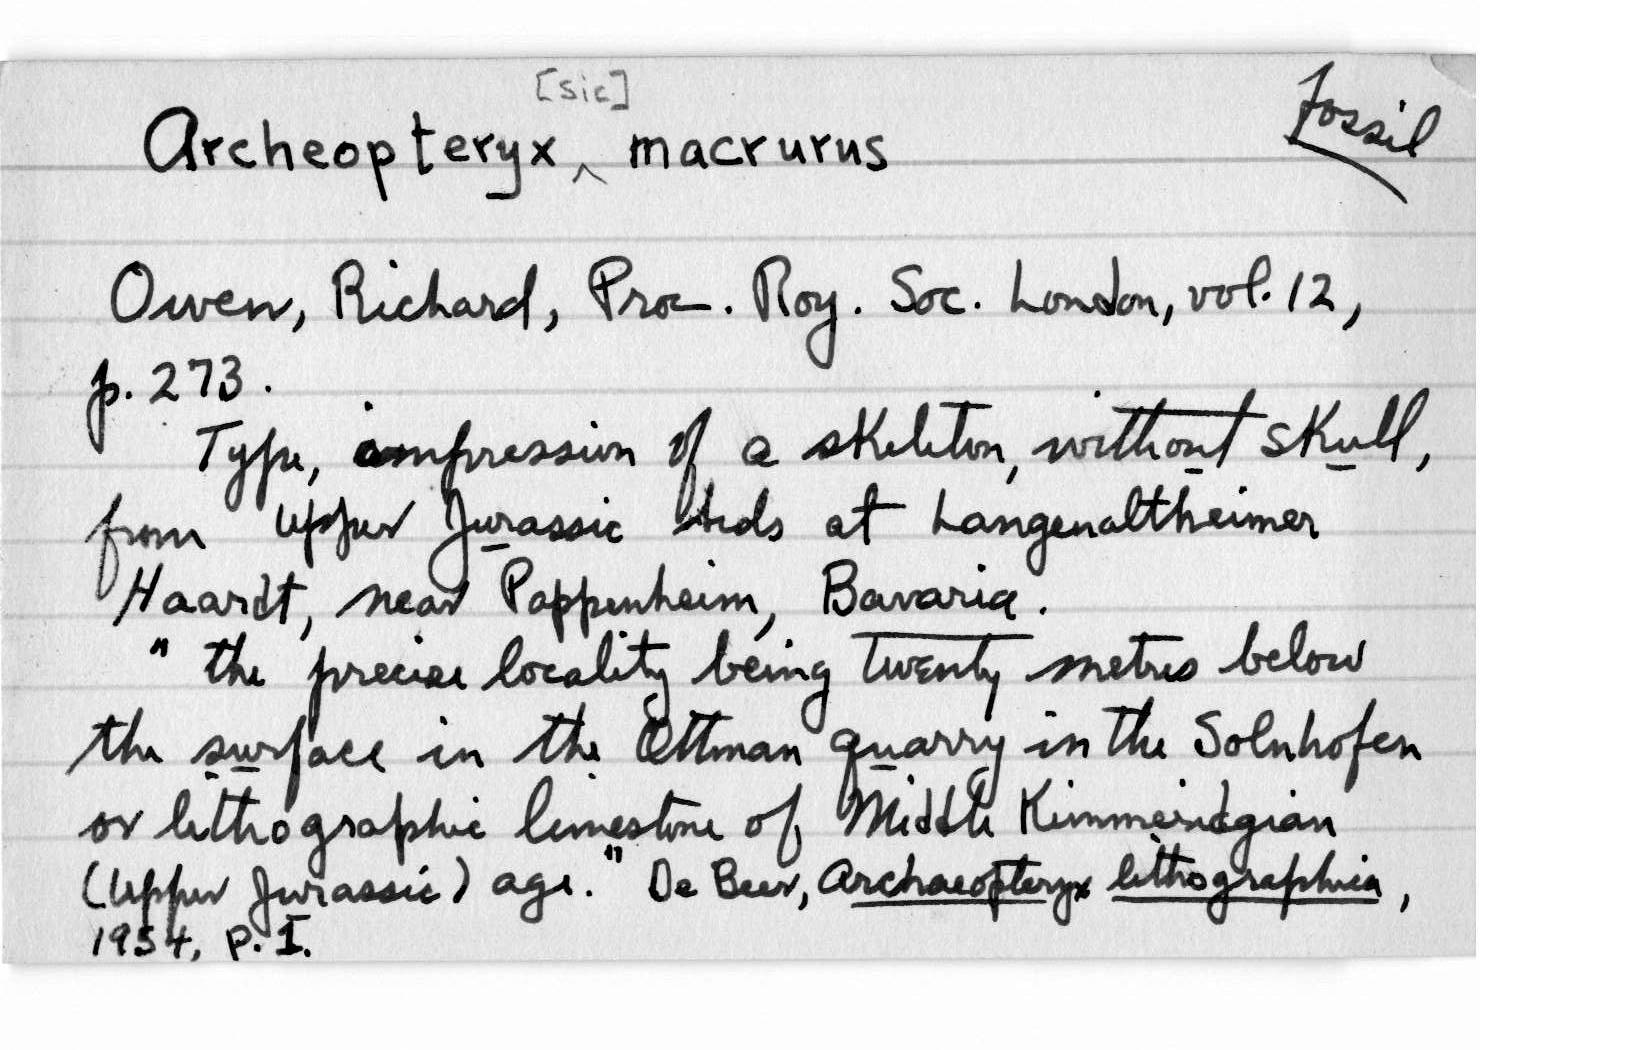 [sic]
Archeopteryx ^ macrurus
Fossil
Owen, Richard, Proc. Roy. Soc. London, vol. 12,
p. 273.
Type, impression of a skeleton, without skull,
from Upper Jurassic beds at Langenaltheimer
Haardt, near Pappenheim, Bavaria.
"the precise locality being twenty metres below
the surface in the Ottman quarry in the Solnhofen
or lithographic limestone of Middle Kimmeridgian
(Upper Jurassic) age." De Beer, Archaeopteryx lithographica,
1954, p. I.